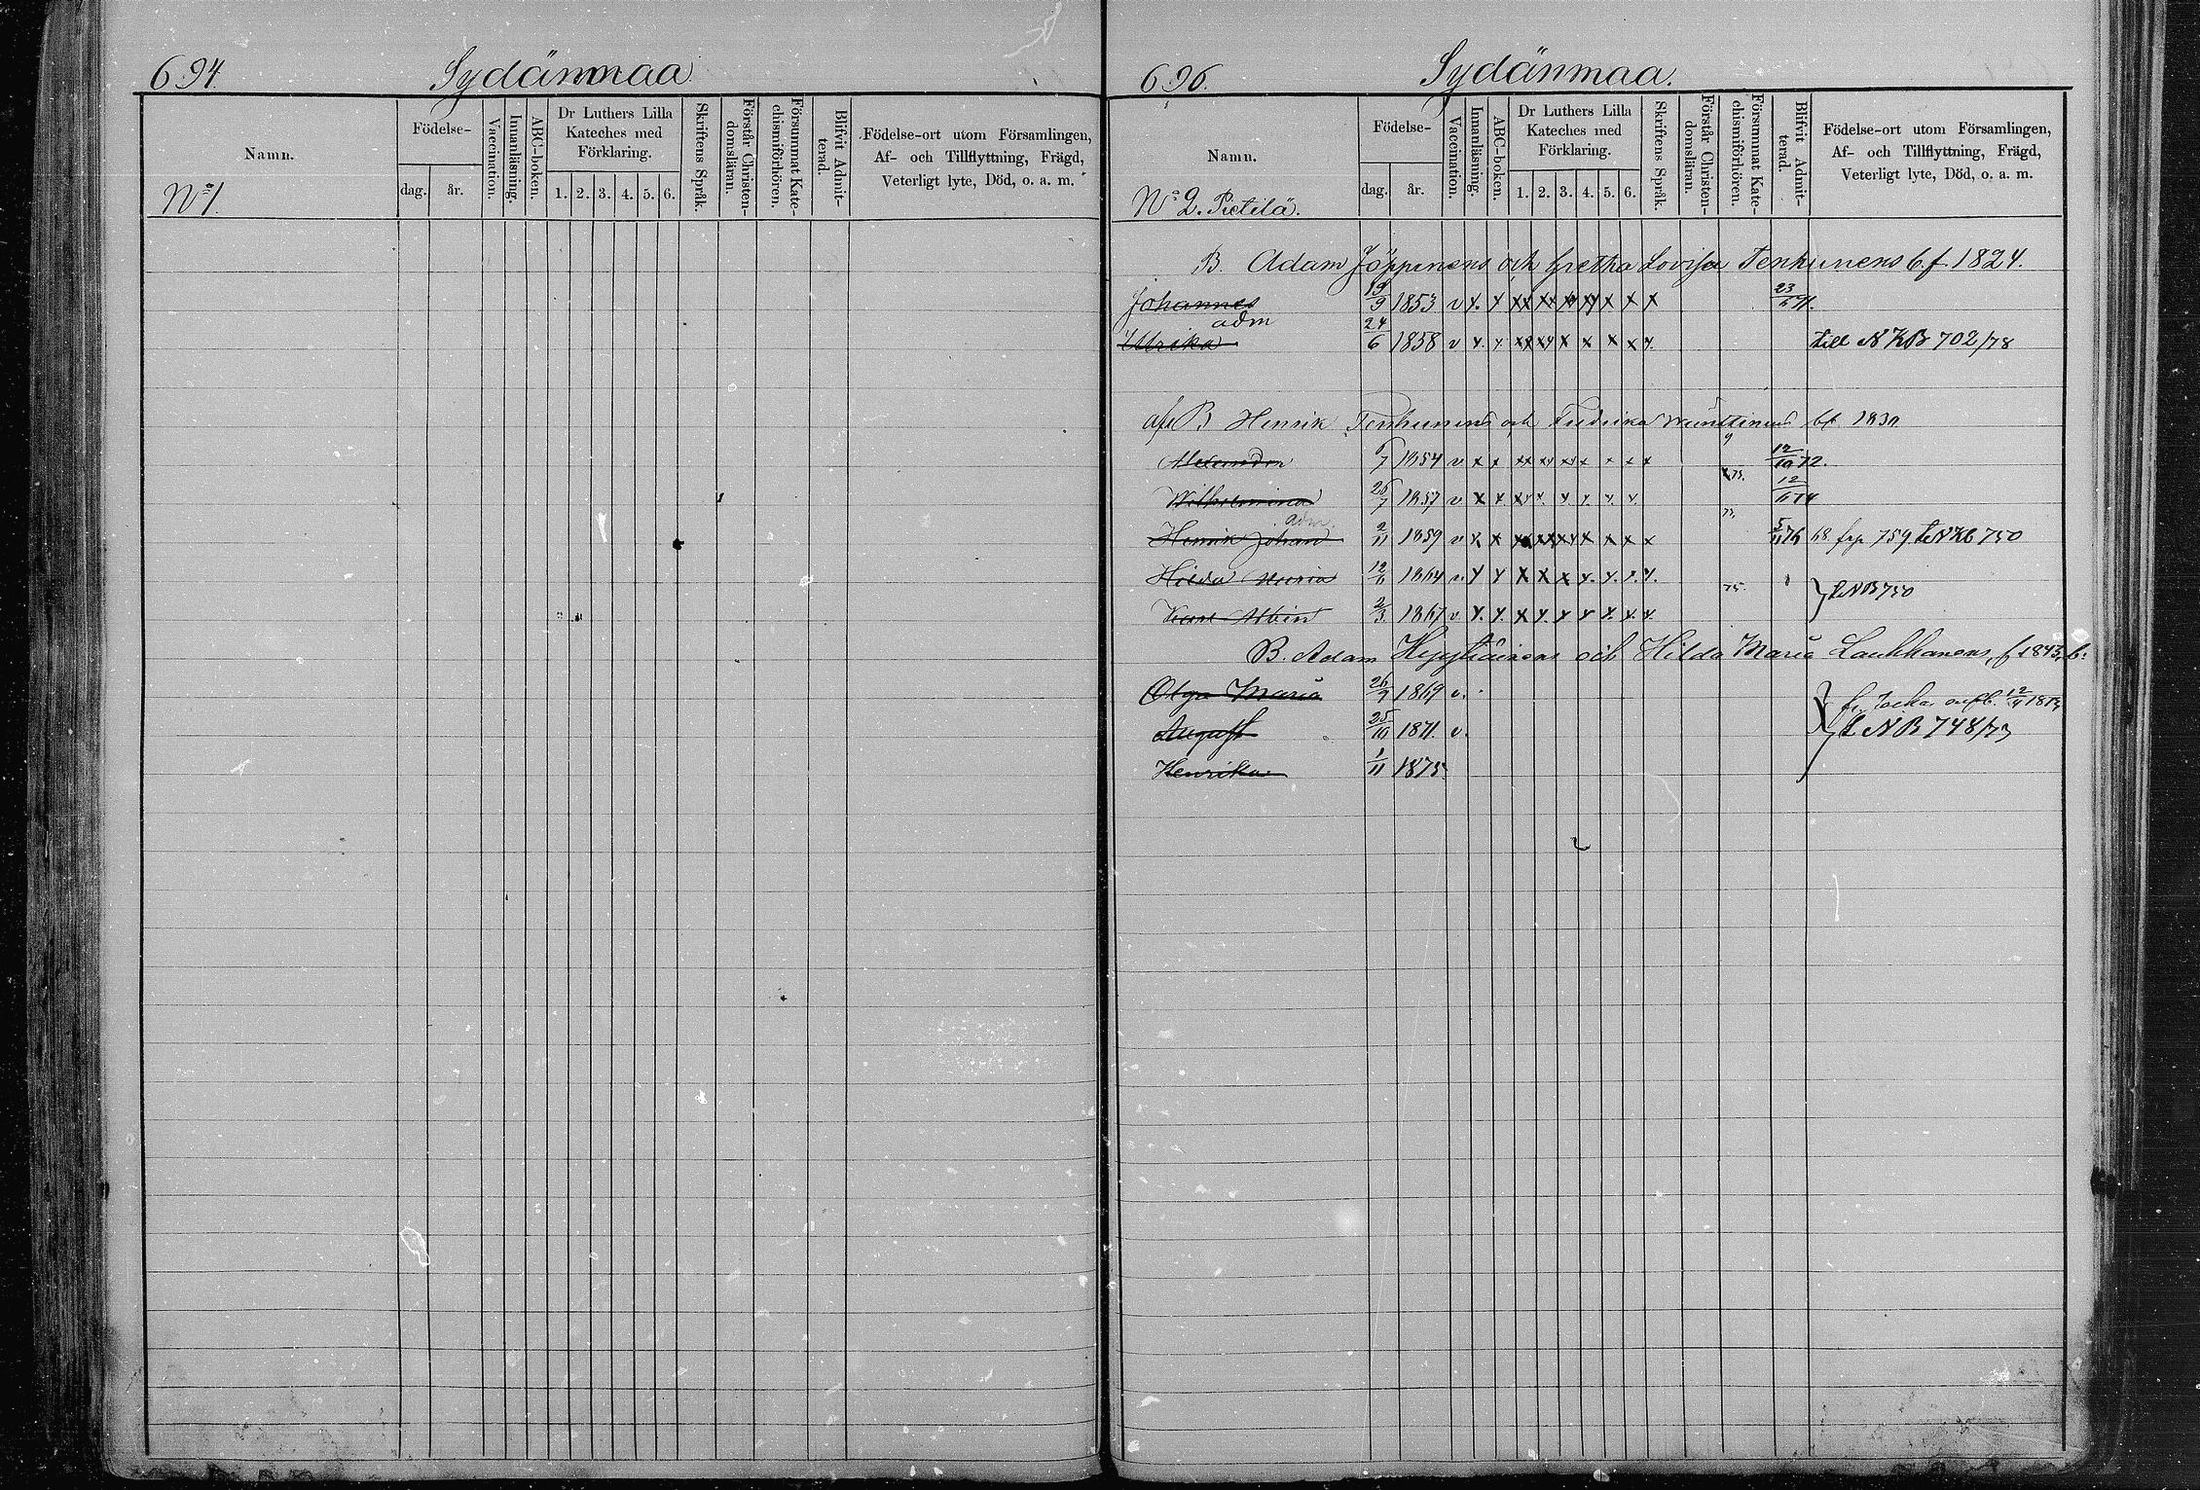 694.
Sydänmaa
Namn.
Födelse-
dag.
år.
Vaccination.
Innanläsning.
ABC-boken.
Dr Luthers Lilla
Kateches med
Förklaring.
1. 2. 3. 4. 5. 6.
Skriftens Språk.
Förstår Christen-
domsläran.
Försummat Kate-
chismiförhören.
Blifvit Admit-
terad.
Födelse-ort utom Församlingen,
Af- och Tillflyttning, Frägd,
Veterligt lyte, Död, o. a. m.
No 1.
696.
Sydänmaa.
Namn.
Födelse-
dag.
år.
Vaccination.
Innanläsning.
ABC-boken.
Dr Luthers Lilla
Kateches med
Förklaring.
1. 2. 3. 4. 5. 6.
Skriftens Språk.
Förstår Christen-
domsläran.
Försummat Kate-
chismiförhören.
Blifvit Admit-
terad.
Födelse-ort utom Församlingen,
Af- och Tillflyttning, Frägd,
Veterligt lyte, Död, o. a. m.
No 2. Pietilä.
B. Adam Jöppinens och Gretha Lovisa Tenhunens b f. 1824.
Johannes 19/9 1853 v x. x xx xx xx xy x x x 23/6 71.
adm
Ulrika 24/6 1858 v x. x. xx xy x x x x x. till N KB 702/78
B Henrik Tenhunens och Fredrika bf 1830
Alexandra 6/7 1854 v x x xx xx xx x x x x 12/10 72.
Wilhelmina 25/7 1857 v x x. 75. 12/6 74
adm.
Henrik Johan 2/11 1859 v x. x 73, 5/11 76 68 frp 759 t. N Kb 750
Hilda Maria 12/6 1864 v. x x x x x x. x. x. x.
Karl Albin 2/3 1867 v x. x. x x. x x x. x. x. 75. } t. NB 750
B. Adam Hyytiäinens och Hilda Maria Laukkanens, f 1843, b:
Olga Maria 26/9 1869 v.
August 25/10 1871. v. } t. NB 748/73
Henrika 1/11 1875